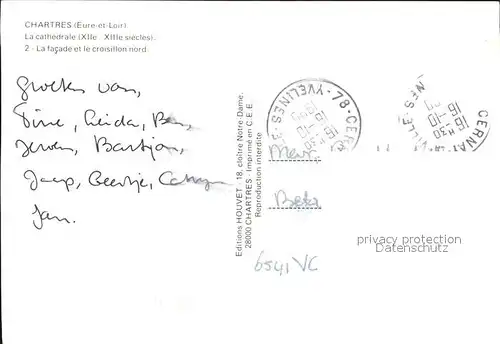 CHARTRES (Eure-et-Loir)
La cathédrale (XIIe - XIIIe siècles).
2 - La façade et le croisillon nord
Groeten van,
Tine, Leida, Ben,
Jeroen, Bastjan,
Jaap, Geertje,
Jan.
Editions HOUVET - 18, cloître Notre-Dame.
28000 CHARTRES - Imprimé en C.E.E.
Reproduction interdite
78-CER
YVELINES
16 H30
16-10
CERNAY
VILLE
16 H30
16-10
Beta
6541 VC
privacy protection
Datenschutz